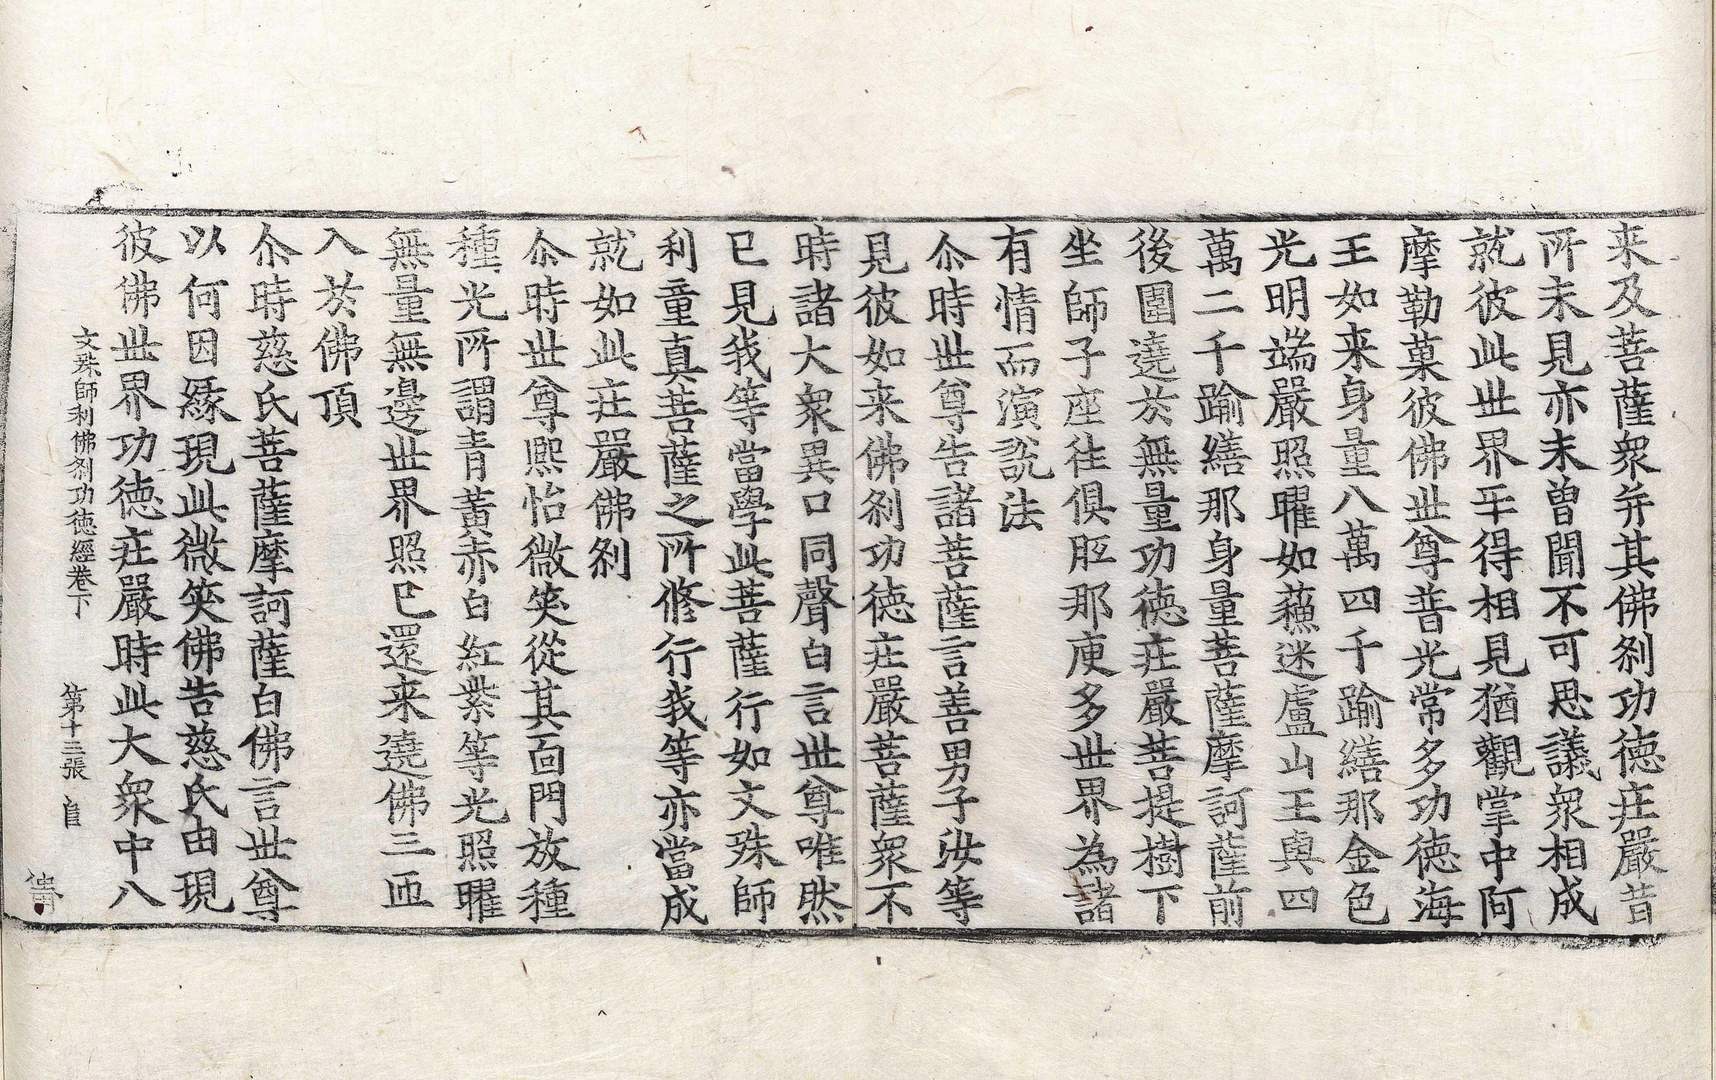 来及菩薩衆并其佛刹功徳庄嚴昔
所未見亦未曾聞不可思議衆相成
就彼此世界㸦得相見猶觀掌中阿
摩勒菓彼佛世尊普光常多功徳海
王如来身量八萬四千踰繕那金色
光明端嚴照曜如蘓迷盧山王與四
萬二千踰繕那身量菩薩摩訶薩前
後圍遶於無量功徳庄嚴菩提樹下
坐師子座往俱胝那庾多世界為諸
有情而演説法
尒時世尊告諸菩薩言善男子汝等
見彼如来佛刹功徳庄嚴菩薩衆不
時諸大衆異口同聲白言世尊唯然
已見我等當學此菩薩行如文殊師
利童真菩薩之所修行我等亦當成
就如此庄嚴佛刹
尒時世尊熙怡微笑從其面門放種
種光所謂青黄赤白紅紫等光照曜
無量無邊世界照已還来遶佛三匝
入於佛頂
尒時慈氏菩薩摩訶薩白佛言世尊
以何因縁現此微笑佛告慈氏由現
彼佛世界功徳庄嚴時此大衆中八
文殊師利佛刹功徳經卷下 第十三張